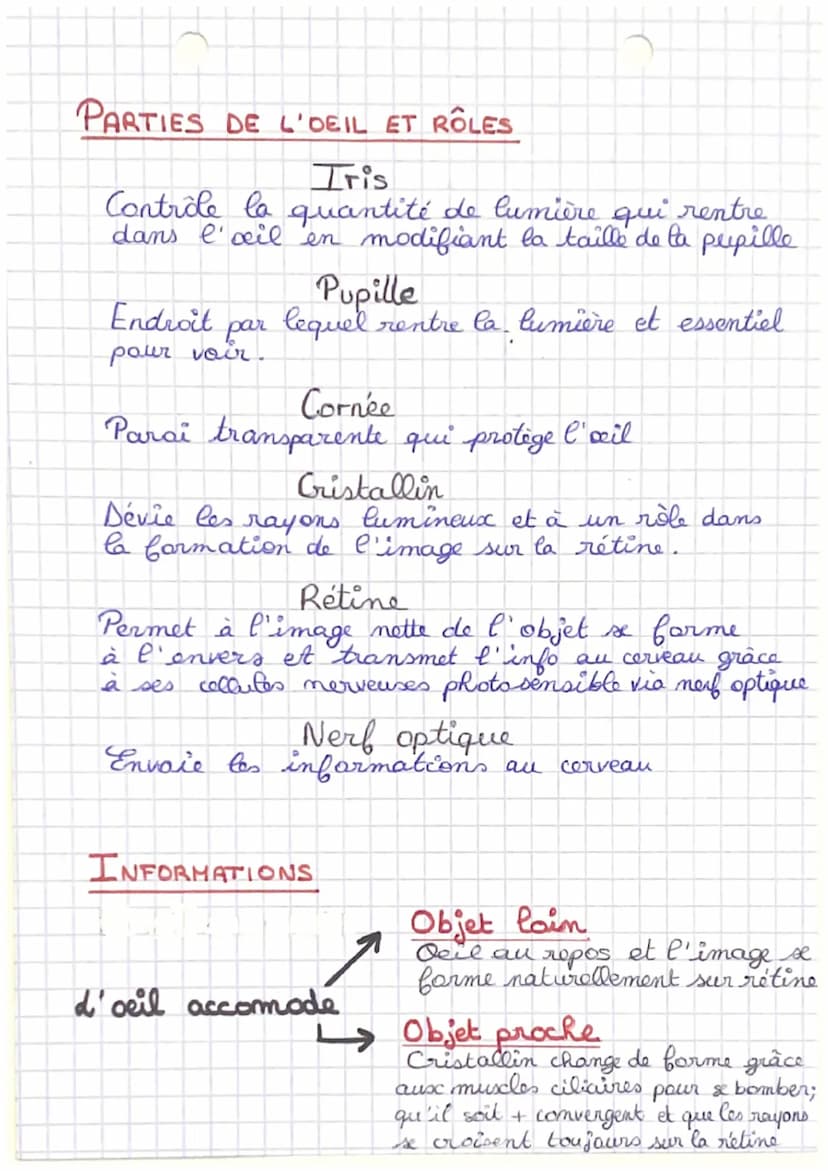 PARTIES DE L'OEIL ET RÔLES
Iris
Contrôle la quantité de lumière qui rentre
dans l'œil en modifiant la taille de la pupille
Pupille
Endroit par lequel rentre la lumière et essentiel
pour voir.
Cornée
Paroi transparente qui protège l'œil
Cristallin
Dévie les rayons lumineux et à un rôle dans
la formation de l'image sur la rétine.
Rétine
Permet à l'image nette de l'objet se forme
à l'envers et transmet l'info au cerveau grâce
à ses cellules nerveuses photosensible via nerf optique
Nerf optique
Envoie les informations au cerveau
INFORMATIONS
Objet loin
Oeil au repos et l'image se
forme naturellement sur rétine
L'oeil accomode
Objet proche
Cristallin change de forme grâce
aux muscles ciliaires pour se bomber;
qu'il soit + convergent et que les rayons
se croisent toujours sur la rétine